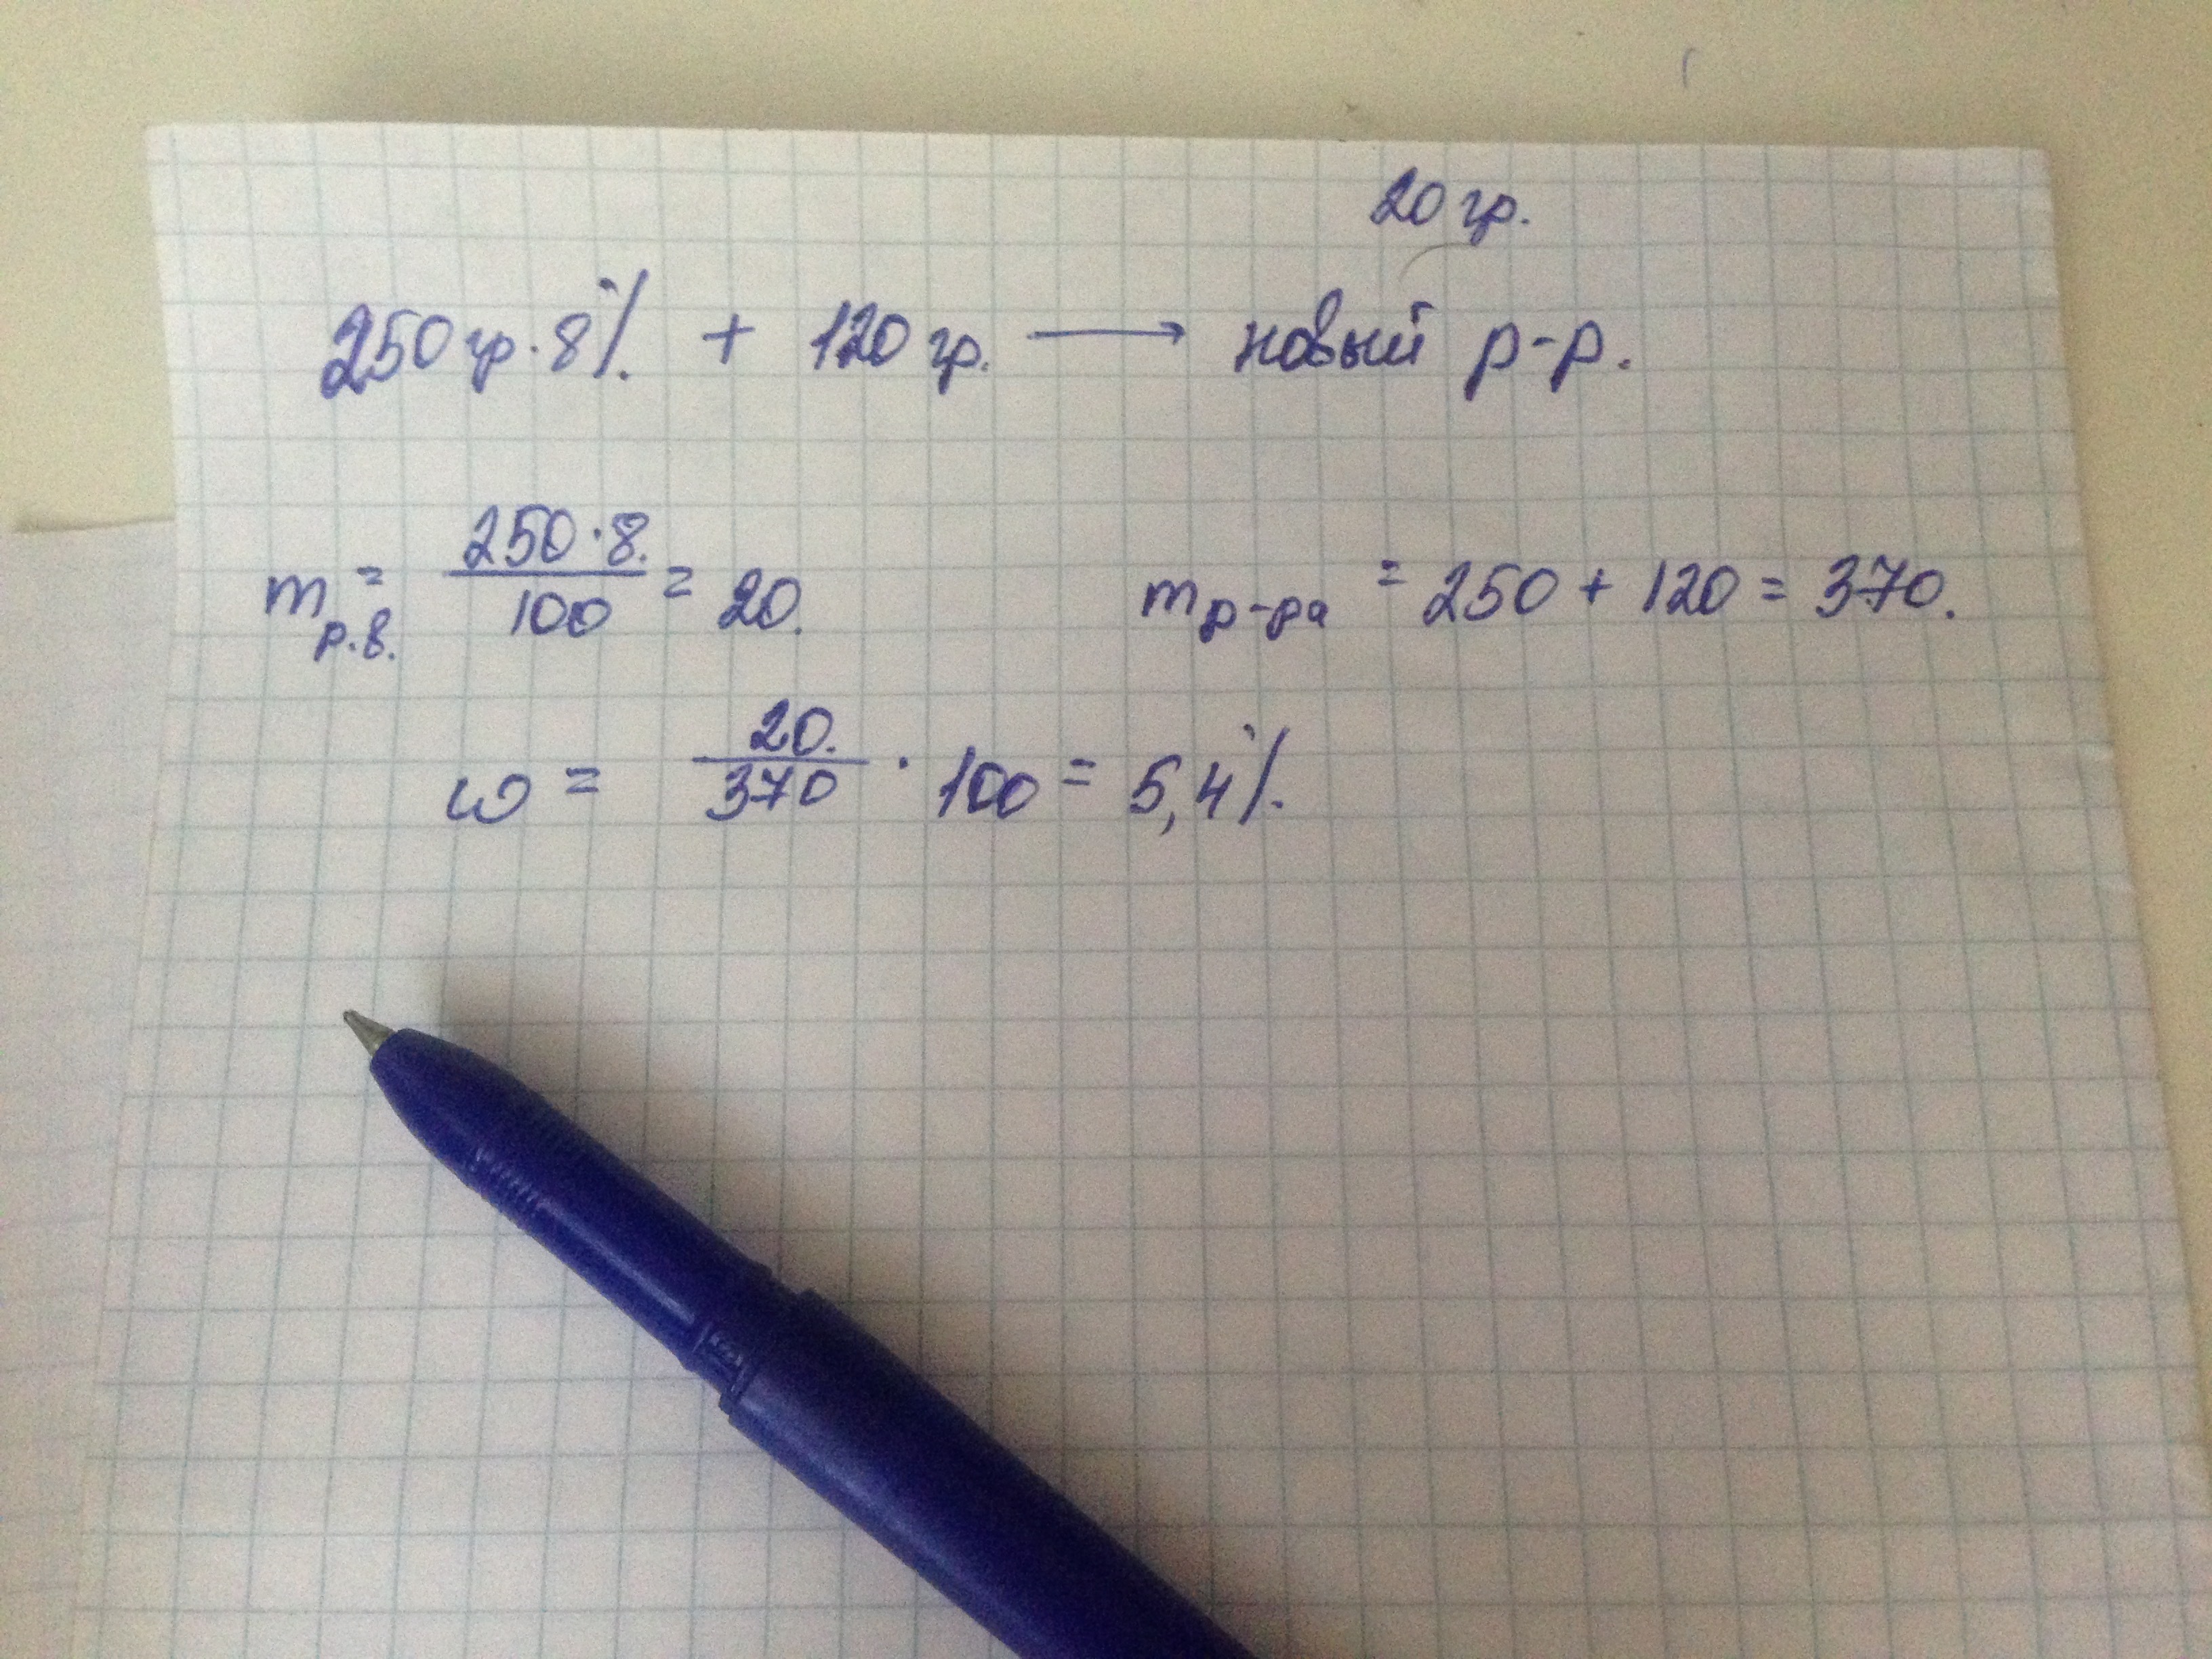 20 гр.
250 гр. 8% + 120 гр. → новый р-р.
m р.в. = 250·8 / 100 = 20. m р-ра = 250 + 120 = 370.
ω = 20 / 370 · 100 = 5,4%